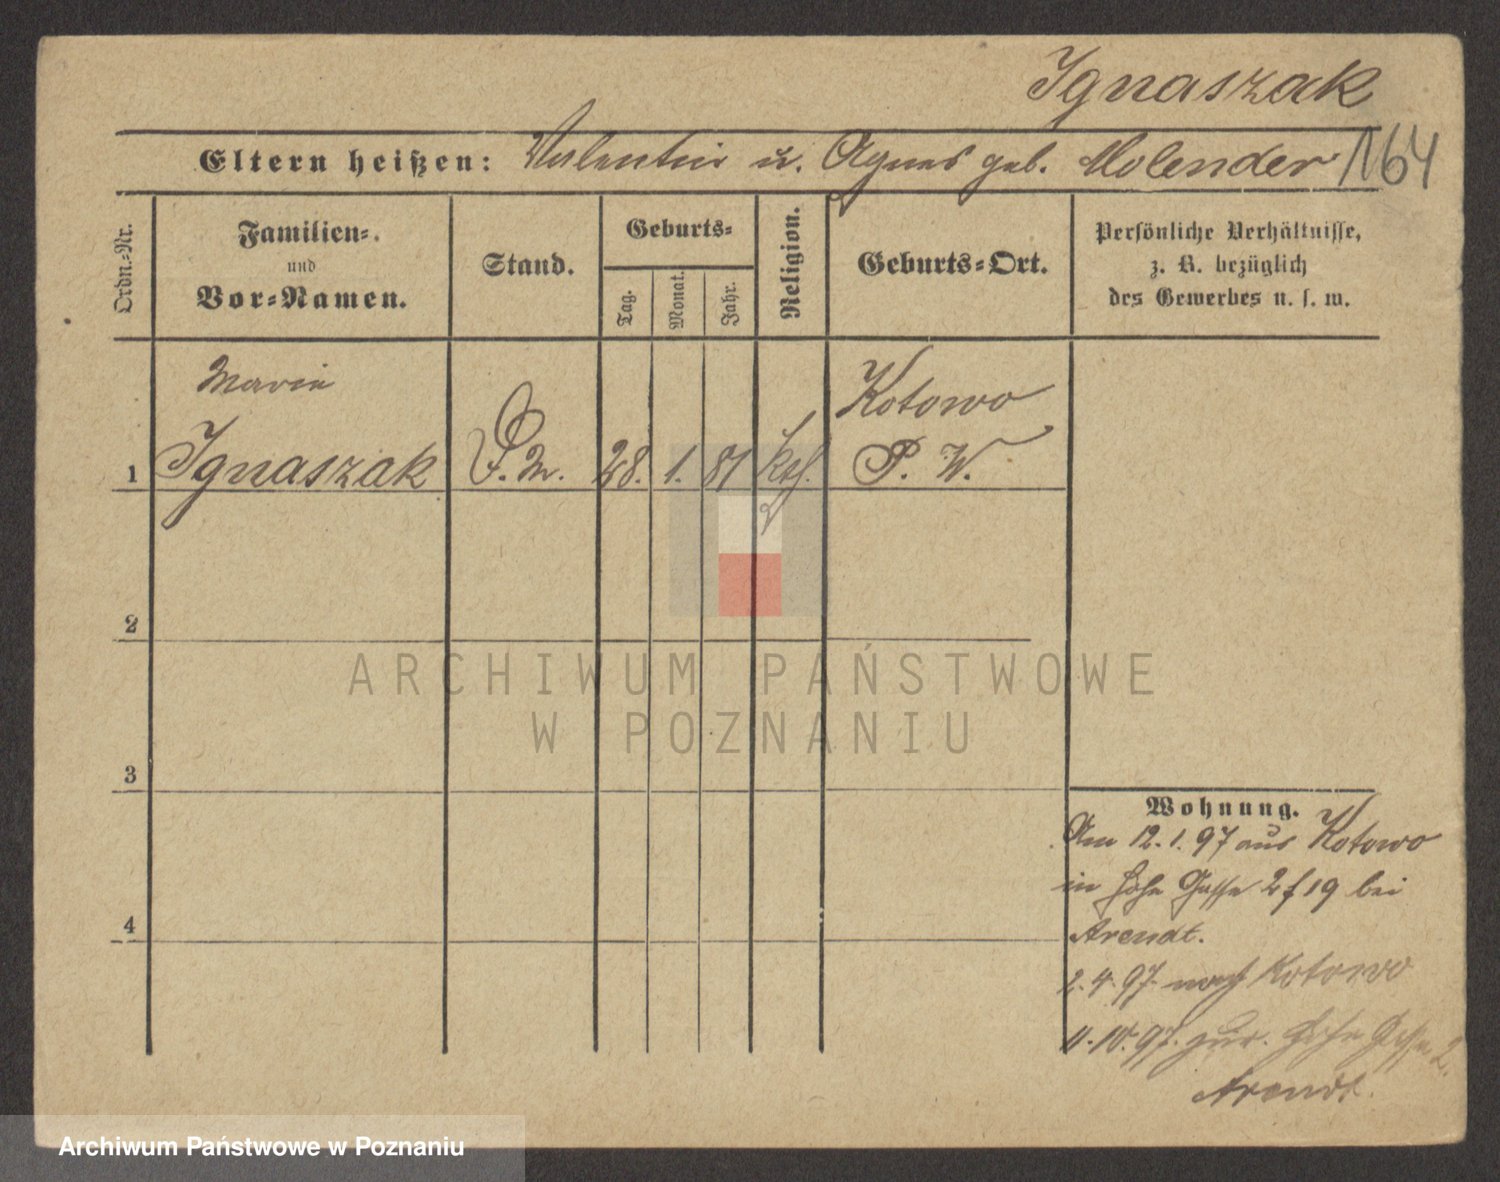 Ignaszak
Eltern heißen: Valentin u. Agnes geb. Molender
164
Ordn.-Nr.
Familien-
und
Vor-Namen.
Stand.
Geburts-
Tag.
Monat.
Jahr.
Religion.
Geburts-Ort.
Persönliche Verhältnisse,
z. B. bezüglich
des Gewerbes u. s. w.
Marie
1 Ignaszak
D. M. 28. 1. 81 kth.
Kotowo
P. W.
2
3
4
Wohnung.
Am 12.1.97 aus Kotowo
in hohe Gasse 2 f 19 bei
Arendt.
2.4.97 nach Kotowo
11.10.97. zur. Hohe Gasse 2.
Arendt.
ARCHIWUM PAŃSTWOWE
W POZNANIU
Archiwum Państwowe w Poznaniu